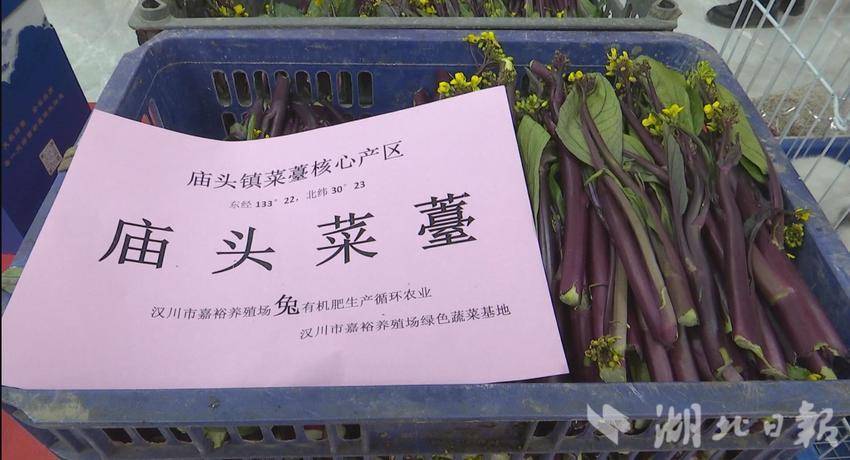 庙头镇菜薹核心产区
东经 133° 22，北纬 30° 23
庙头菜薹
汉川市嘉裕养殖场兔有机肥生产循环农业
汉川市嘉裕养殖场绿色蔬菜基地
湖北日报